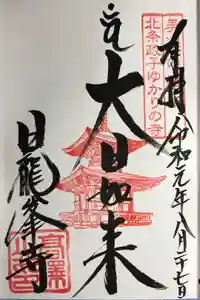 奉拝
令和元年八月二十七日
北条政子ゆかりの寺
大日如来
日龍峯寺
高澤